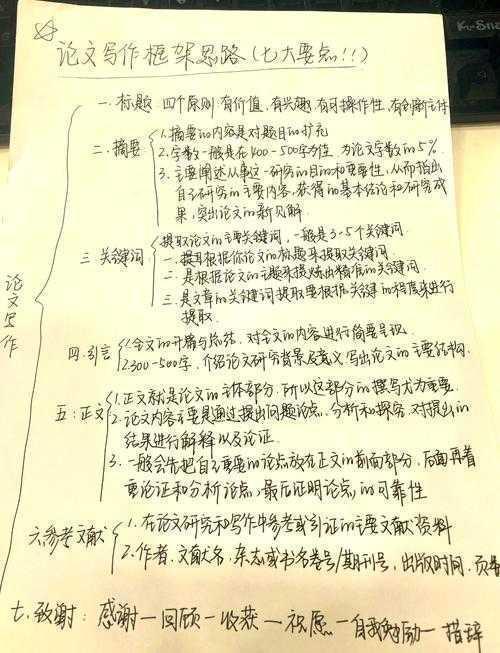 论文写作框架思路（七大要点!!!）
论文写作
一.标题 四个原则:有价值,有兴趣,有可操作性,有创新立体
二.摘要
1.摘要的内容是对题目的扩充
2.字数一般是在400-500字为值,为论文字数的5%.
3.主要阐述从事这一研究的目的和重要性,从而指出
自己研究的主要内容,获得的基本结论和研究成
果,突出论文的新见解.
三.关键词
提取论文的主要关键词,一般是3-5个关键词
一.提取根据你论文的标题来提取关键词.
二.是根据论文的主题来提炼出精准的关键词.
三.是文章的关键词提取要根据关键的程度来进行
提取.
四.引言
1.全文的开篇与总结,对全文的内容进行简要呈现.
2.300-500字,介绍论文研究背景及意义,写出论文的主要结构.
五:正文
1.正文就是论文的主体部分,所以这部分的撰写尤为重要.
2.论文内容主要是通过提出问题论点,分析和探究,对提出的
结果进行解释以及论证.
3.一般会先把自己主要的论点放在正文的前面部分,后面再着
重论证和分析论点,最后证明论点的可靠性
六.参考文献
1.在论文研究和写作中参考或引证的主要文献资料
2.作者,文献名,杂志或书名卷号/期刊号,出版时间,页
七.致谢:感谢一回顾一收获一祝愿一自我勉励一措辞